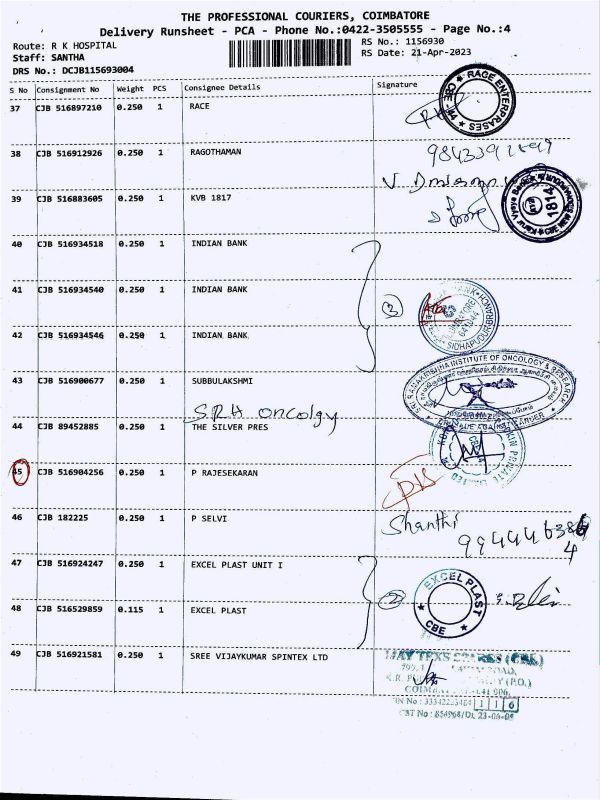 THE PROFESSIONAL COURIERS, COIMBATORE
Delivery Runsheet - PCA - Phone No.:0422-3505555 - Page No.:4
Route: R K HOSPITAL
RS No.: 1156930
Staff: SANTHA
RS Date: 21-Apr-2023
DRS No.: DCJB115693004
S No Consignment No Weight PCS Consignee Details Signature
37 CJB 516897210 0.250 1 RACE
RACE ENTERPRASES
CBE-44
38 CJB 516912926 0.250 1 RAGOTHAMAN
39 CJB 516883605 0.250 1 KVB 1817
1814
40 CJB 516934518 0.250 1 INDIAN BANK
41 CJB 516934540 0.250 1 INDIAN BANK
SIDHAPUDUR BRANCH
42 CJB 516934546 0.250 1 INDIAN BANK
43 CJB 516900677 0.250 1 SUBBULAKSHMI
SRI RAMAKRISHNA INSTITUTE OF ONCOLOGY & RESEARCH
S.R.H oncolgy
44 CJB 89452885 0.250 1 THE SILVER PRES
PRIVATE LIMITED
45 CJB 516904256 0.250 1 P RAJESEKARAN
46 CJB 182225 0.250 1 P SELVI
Shanthi
47 CJB 516924247 0.250 1 EXCEL PLAST UNIT I
48 CJB 516529859 0.115 1 EXCEL PLAST
2
EXCEL PLAST
CBE
49 CJB 516921581 0.250 1 SREE VIJAYKUMAR SPINTEX LTD
CST No : 854968/Dt. 23-06-04